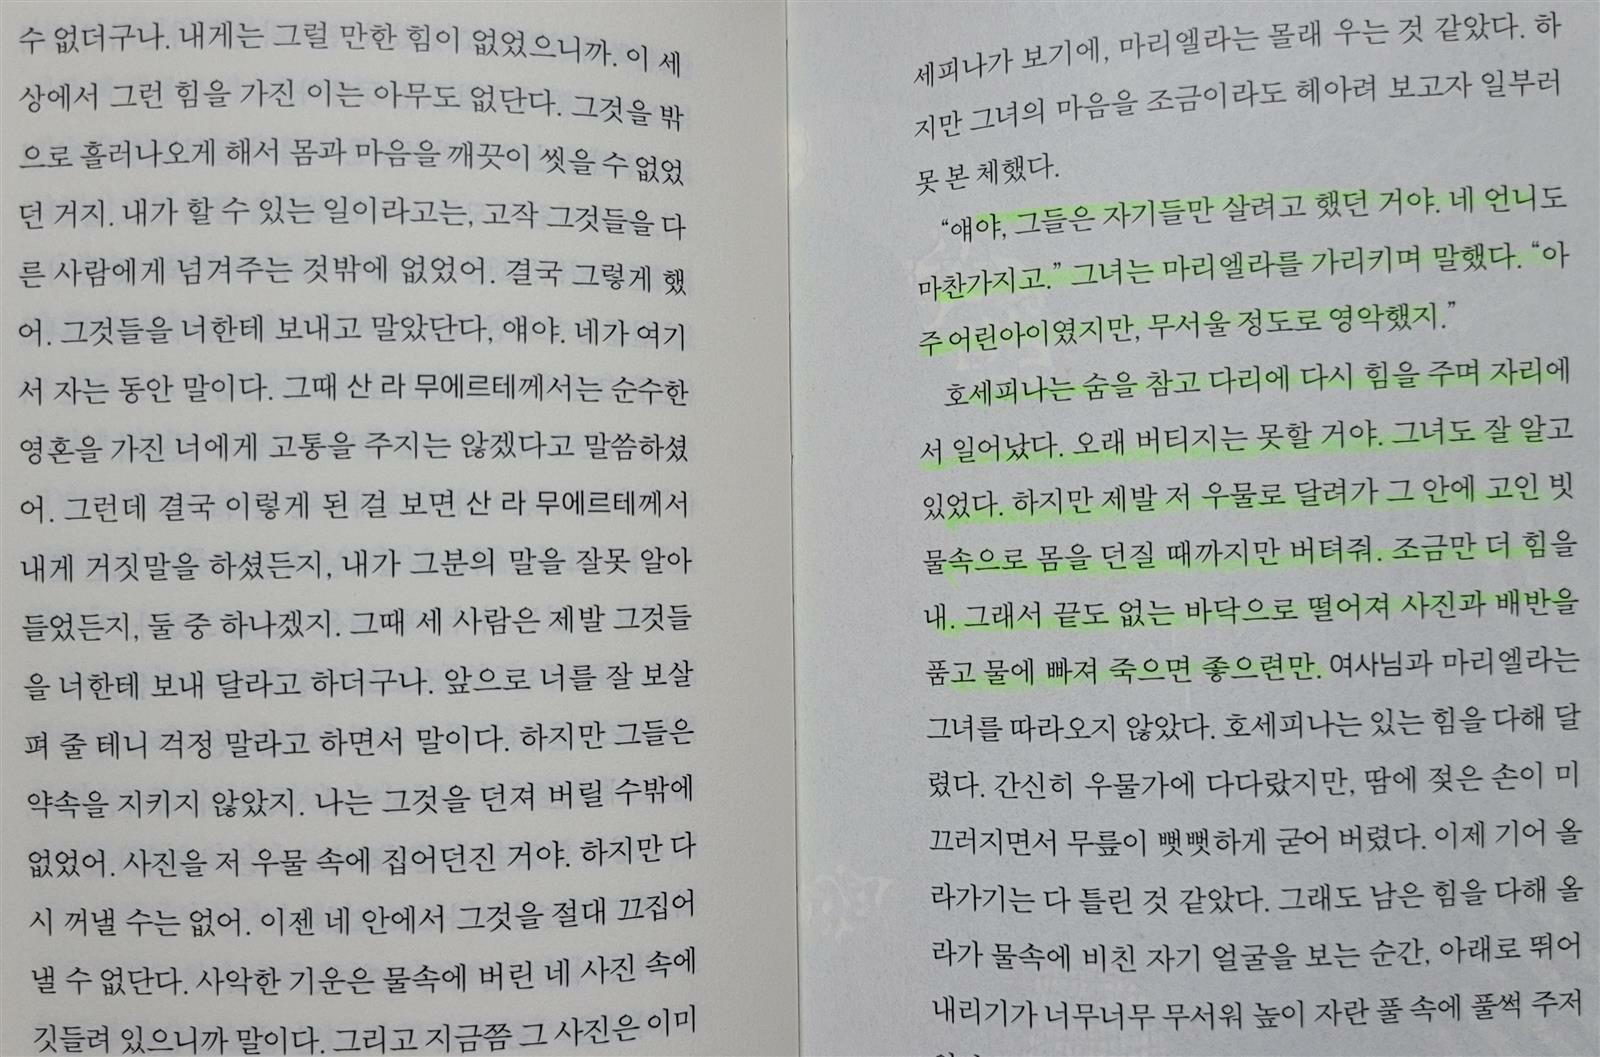 수 없더구나. 내게는 그럴 만한 힘이 없었으니까. 이 세
상에서 그런 힘을 가진 이는 아무도 없단다. 그것을 밖
으로 흘러나오게 해서 몸과 마음을 깨끗이 씻을 수 없었
던 거지. 내가 할 수 있는 일이라고는, 고작 그것들을 다
른 사람에게 넘겨주는 것밖에 없었어. 결국 그렇게 했
어. 그것들을 너한테 보내고 말았단다, 얘야. 네가 여기
서 자는 동안 말이다. 그때 산 라 무에르테께서는 순수한
영혼을 가진 너에게 고통을 주지는 않겠다고 말씀하셨
어. 그런데 결국 이렇게 된 걸 보면 산 라 무에르테께서
내게 거짓말을 하셨든지, 내가 그분의 말을 잘못 알아
들었든지, 둘 중 하나겠지. 그때 세 사람은 제발 그것들
을 너한테 보내 달라고 하더구나. 앞으로 너를 잘 보살
펴 줄 테니 걱정 말라고 하면서 말이다. 하지만 그들은
약속을 지키지 않았지. 나는 그것을 던져 버릴 수밖에
없었어. 사진을 저 우물 속에 집어던진 거야. 하지만 다
시 꺼낼 수는 없어. 이젠 네 안에서 그것을 절대 끄집어
낼 수 없단다. 사악한 기운은 물속에 버린 네 사진 속에
깃들려 있으니까 말이다. 그리고 지금쯤 그 사진은 이미
세피나가 보기에, 마리엘라는 몰래 우는 것 같았다. 하
지만 그녀의 마음을 조금이라도 헤아려 보고자 일부러
못 본 체했다.
“얘야, 그들은 자기들만 살려고 했던 거야. 네 언니도
마찬가지고.” 그녀는 마리엘라를 가리키며 말했다. “아
주 어린아이였지만, 무서울 정도로 영악했지.”
호세피나는 숨을 참고 다리에 다시 힘을 주며 자리에
서 일어났다. 오래 버티지는 못할 거야. 그녀도 잘 알고
있었다. 하지만 제발 저 우물로 달려가 그 안에 고인 빗
물속으로 몸을 던질 때까지만 버텨줘. 조금만 더 힘을
내. 그래서 끝도 없는 바닥으로 떨어져 사진과 배반을
품고 물에 빠져 죽으면 좋으련만. 여사님과 마리엘라는
그녀를 따라오지 않았다. 호세피나는 있는 힘을 다해 달
렸다. 간신히 우물가에 다다랐지만, 땀에 젖은 손이 미
끄러지면서 무릎이 뻣뻣하게 굳어 버렸다. 이제 기어 올
라가기는 다 틀린 것 같았다. 그래도 남은 힘을 다해 올
라가 물속에 비친 자기 얼굴을 보는 순간, 아래로 뛰어
내리기가 너무너무 무서워 높이 자란 풀 속에 풀썩 주저